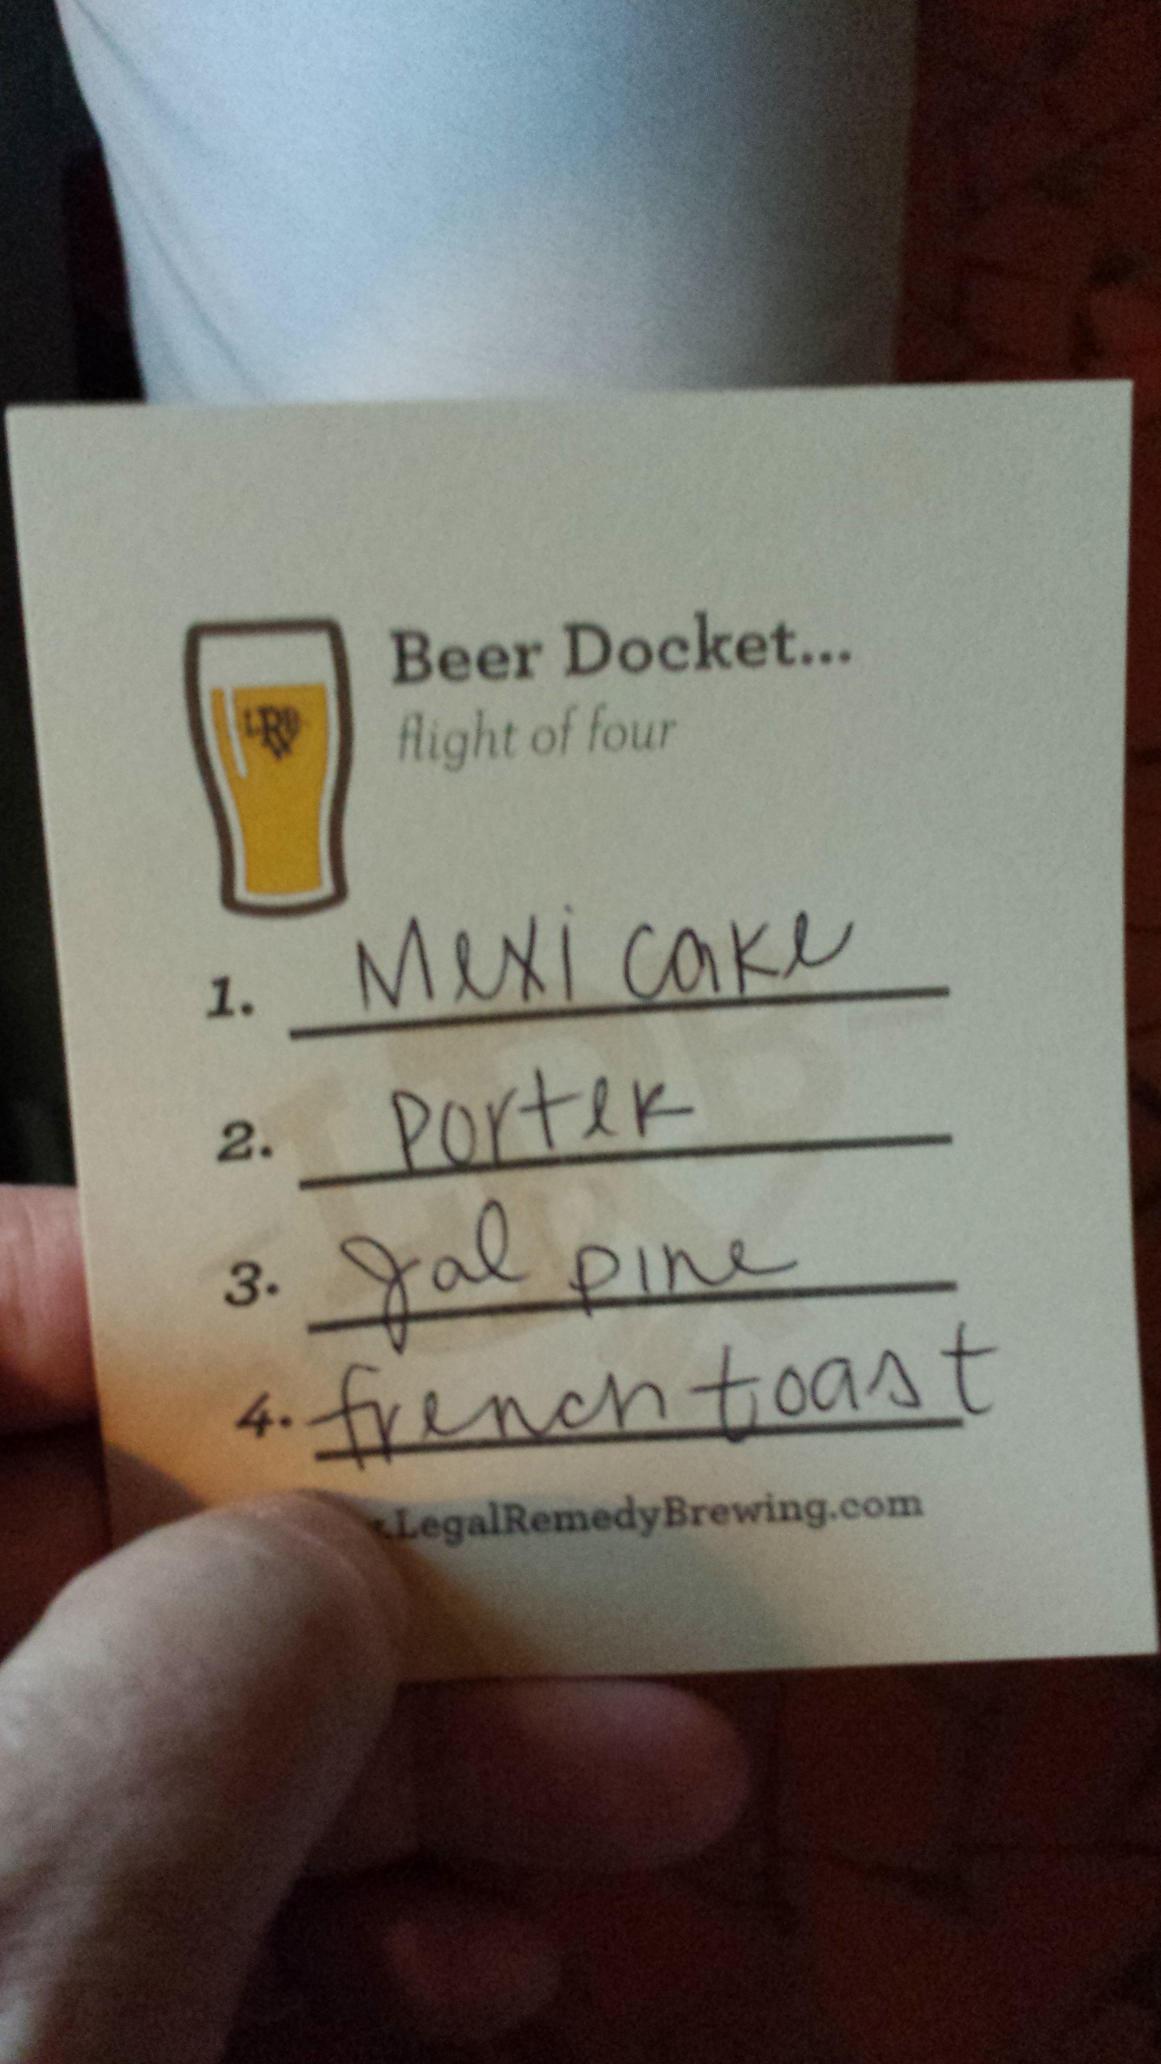 Beer Docket...
flight of four
LRB
1. Mexi cake
2. porter
3. Jal pine
4. french toast
.LegalRemedyBrewing.com